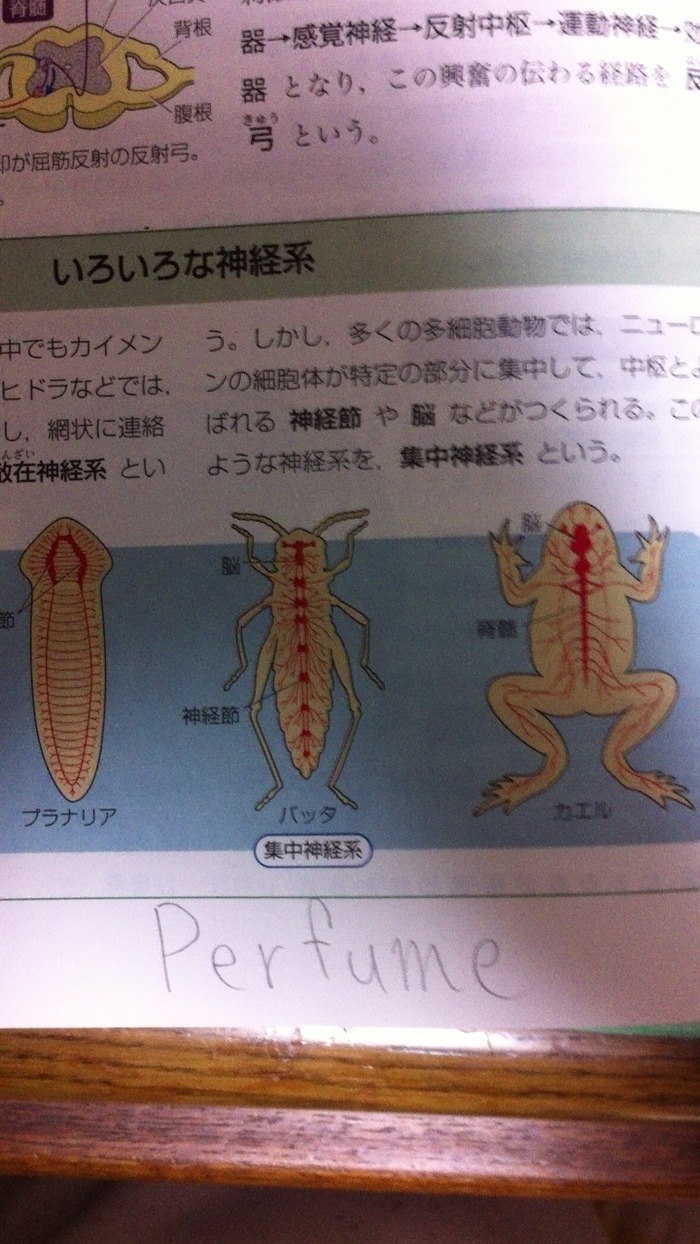 脊髄
背根
腹根
器→感覚神経→反射中枢→運動神経→
器 となり，この興奮の伝わる経路を 反
きゅう
弓 という。
が屈筋反射の反射弓。
。
いろいろな神経系
中でもカイメン
ヒドラなどでは，
し，網状に連絡
んざい
散在神経系 とい
う。しかし，多くの多細胞動物では，ニューロ
ンの細胞体が特定の部分に集中して，中枢とよ
ばれる 神経節 や 脳 などがつくられる。この
ような神経系を，集中神経系 という。
節
脳
神経節
脳
脊髄
プラナリア
バッタ
カエル
集中神経系
Perfume